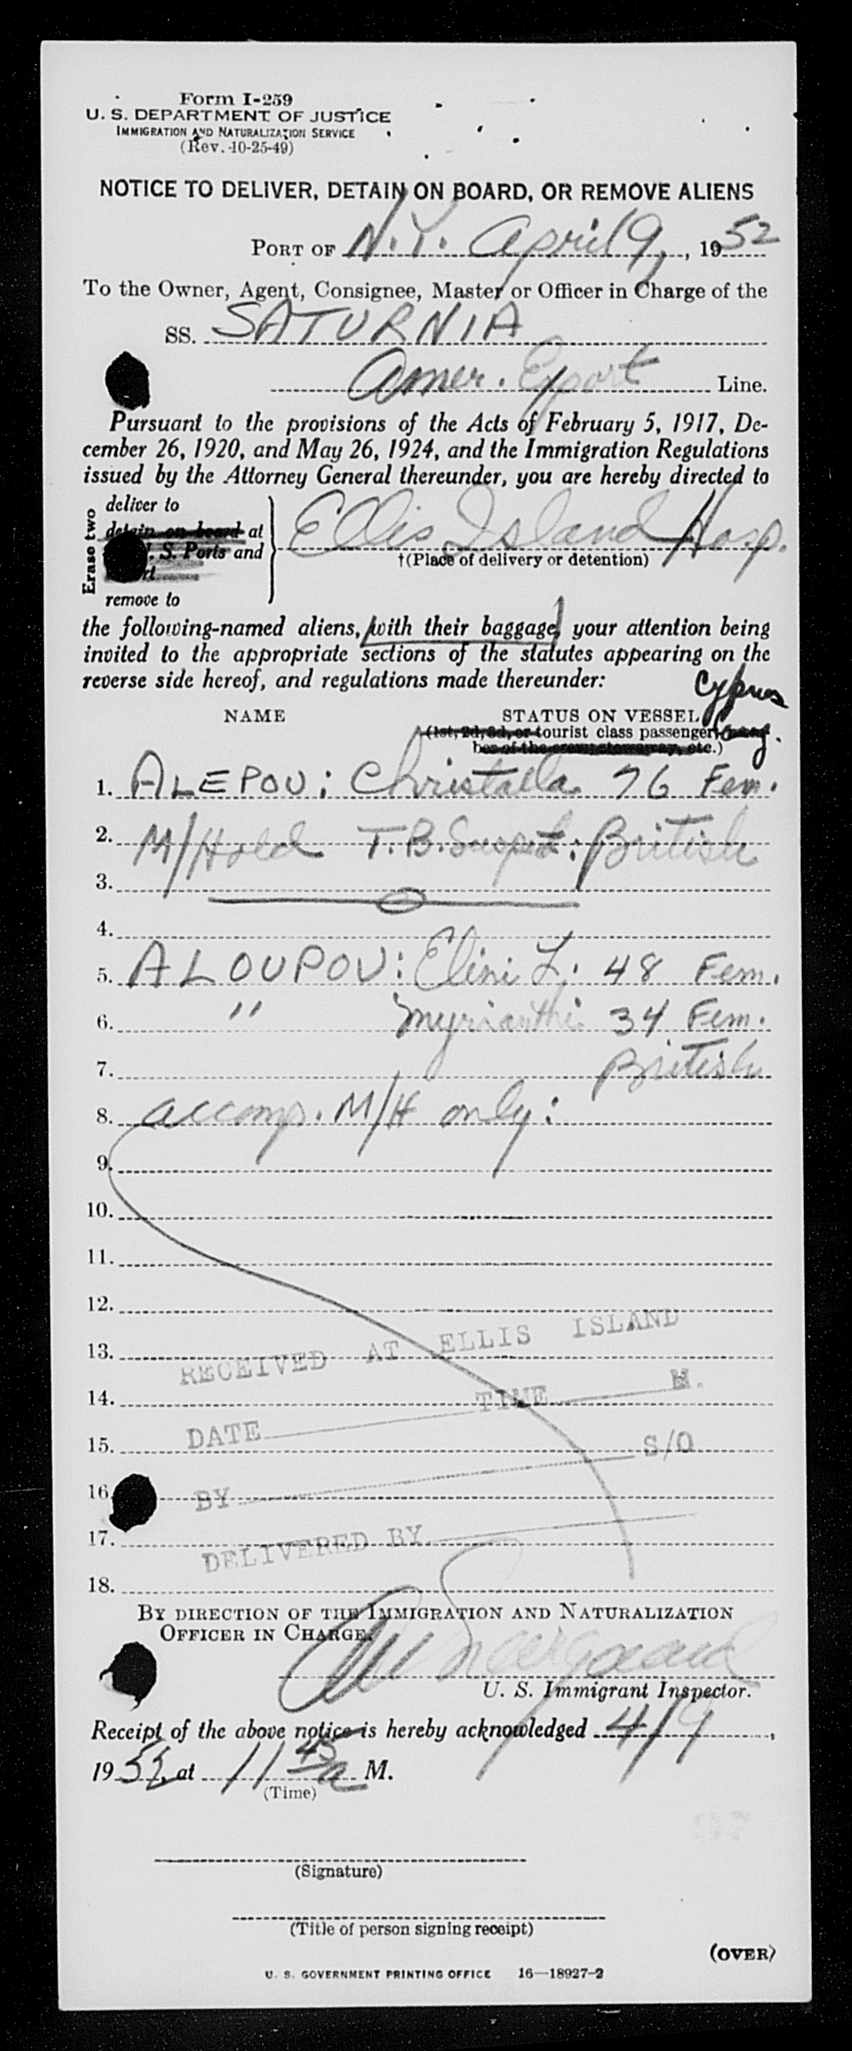 Form I-259
U. S. DEPARTMENT OF JUSTICE
IMMIGRATION AND NATURALIZATION SERVICE
(Rev. 10-25-49)
NOTICE TO DELIVER, DETAIN ON BOARD, OR REMOVE ALIENS
PORT OF N.Y. April 9, 1952
To the Owner, Agent, Consignee, Master or Officer in Charge of the
SS. SATURNIA
Amer. Export Line.
Pursuant to the provisions of the Acts of February 5, 1917, De-
cember 26, 1920, and May 26, 1924, and the Immigration Regulations
issued by the Attorney General thereunder, you are hereby directed to
Erase two
deliver to
detain on board at
S. Ports and
remove to
Ellis Island Hosp.
†(Place of delivery or detention)
the following-named aliens, with their baggage, your attention being
invited to the appropriate sections of the statutes appearing on the
reverse side hereof, and regulations made thereunder:
Cyprus
NAME STATUS ON VESSEL
(1st, 2d, 3d, or tourist class passenger,
ber of the crew, stowaway, etc.)
1. ALEPOU: Christalla 76 Fem.
2. M/Hold T.B. Suspect: British
3.
4.
5. ALOUPOU: Elini L. 48 Fem.
6. " Myrianthi 34 Fem.
7. British
8. accomp. M/H only:
9.
10.
11.
12.
13. RECEIVED AT ELLIS ISLAND
14. TIME M.
15. DATE S/O
16. BY
17. DELIVERED BY
18.
BY DIRECTION OF THE IMMIGRATION AND NATURALIZATION
OFFICER IN CHARGE.
U. S. Immigrant Inspector.
Receipt of the above notice is hereby acknowledged 4/9,
1952, at 11 45 a M.
(Time)
(Signature)
(Title of person signing receipt)
(OVER)
U. S. GOVERNMENT PRINTING OFFICE 16—18927-2